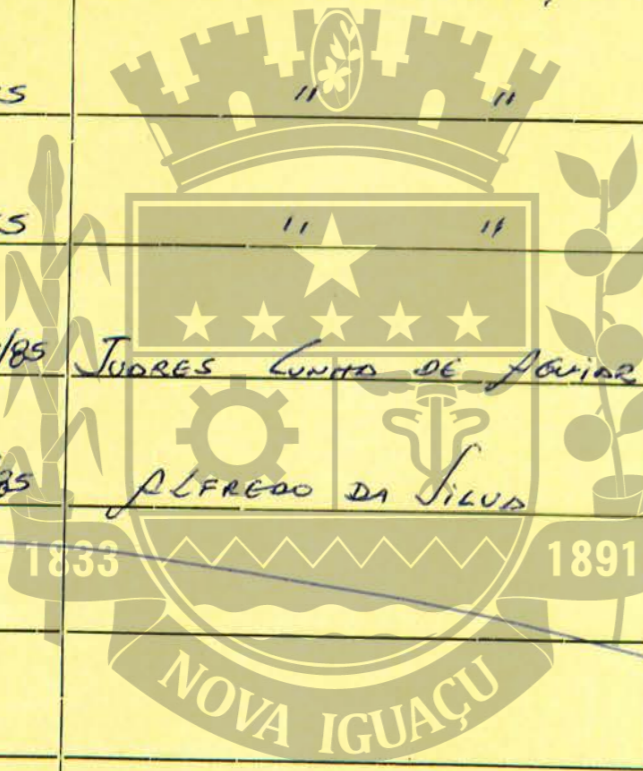 5 " "
5 " "
/85 JUARES CUNHA DE AGUIAR
85 ALFREDO DA SILVA
1833 1891
NOVA IGUAÇU